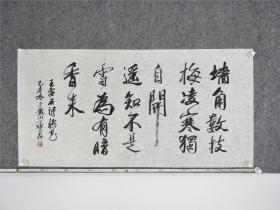 墙角数技
梅凌寒独
自開
遥知不是
雪為有暗
香来
王安石诗梅花